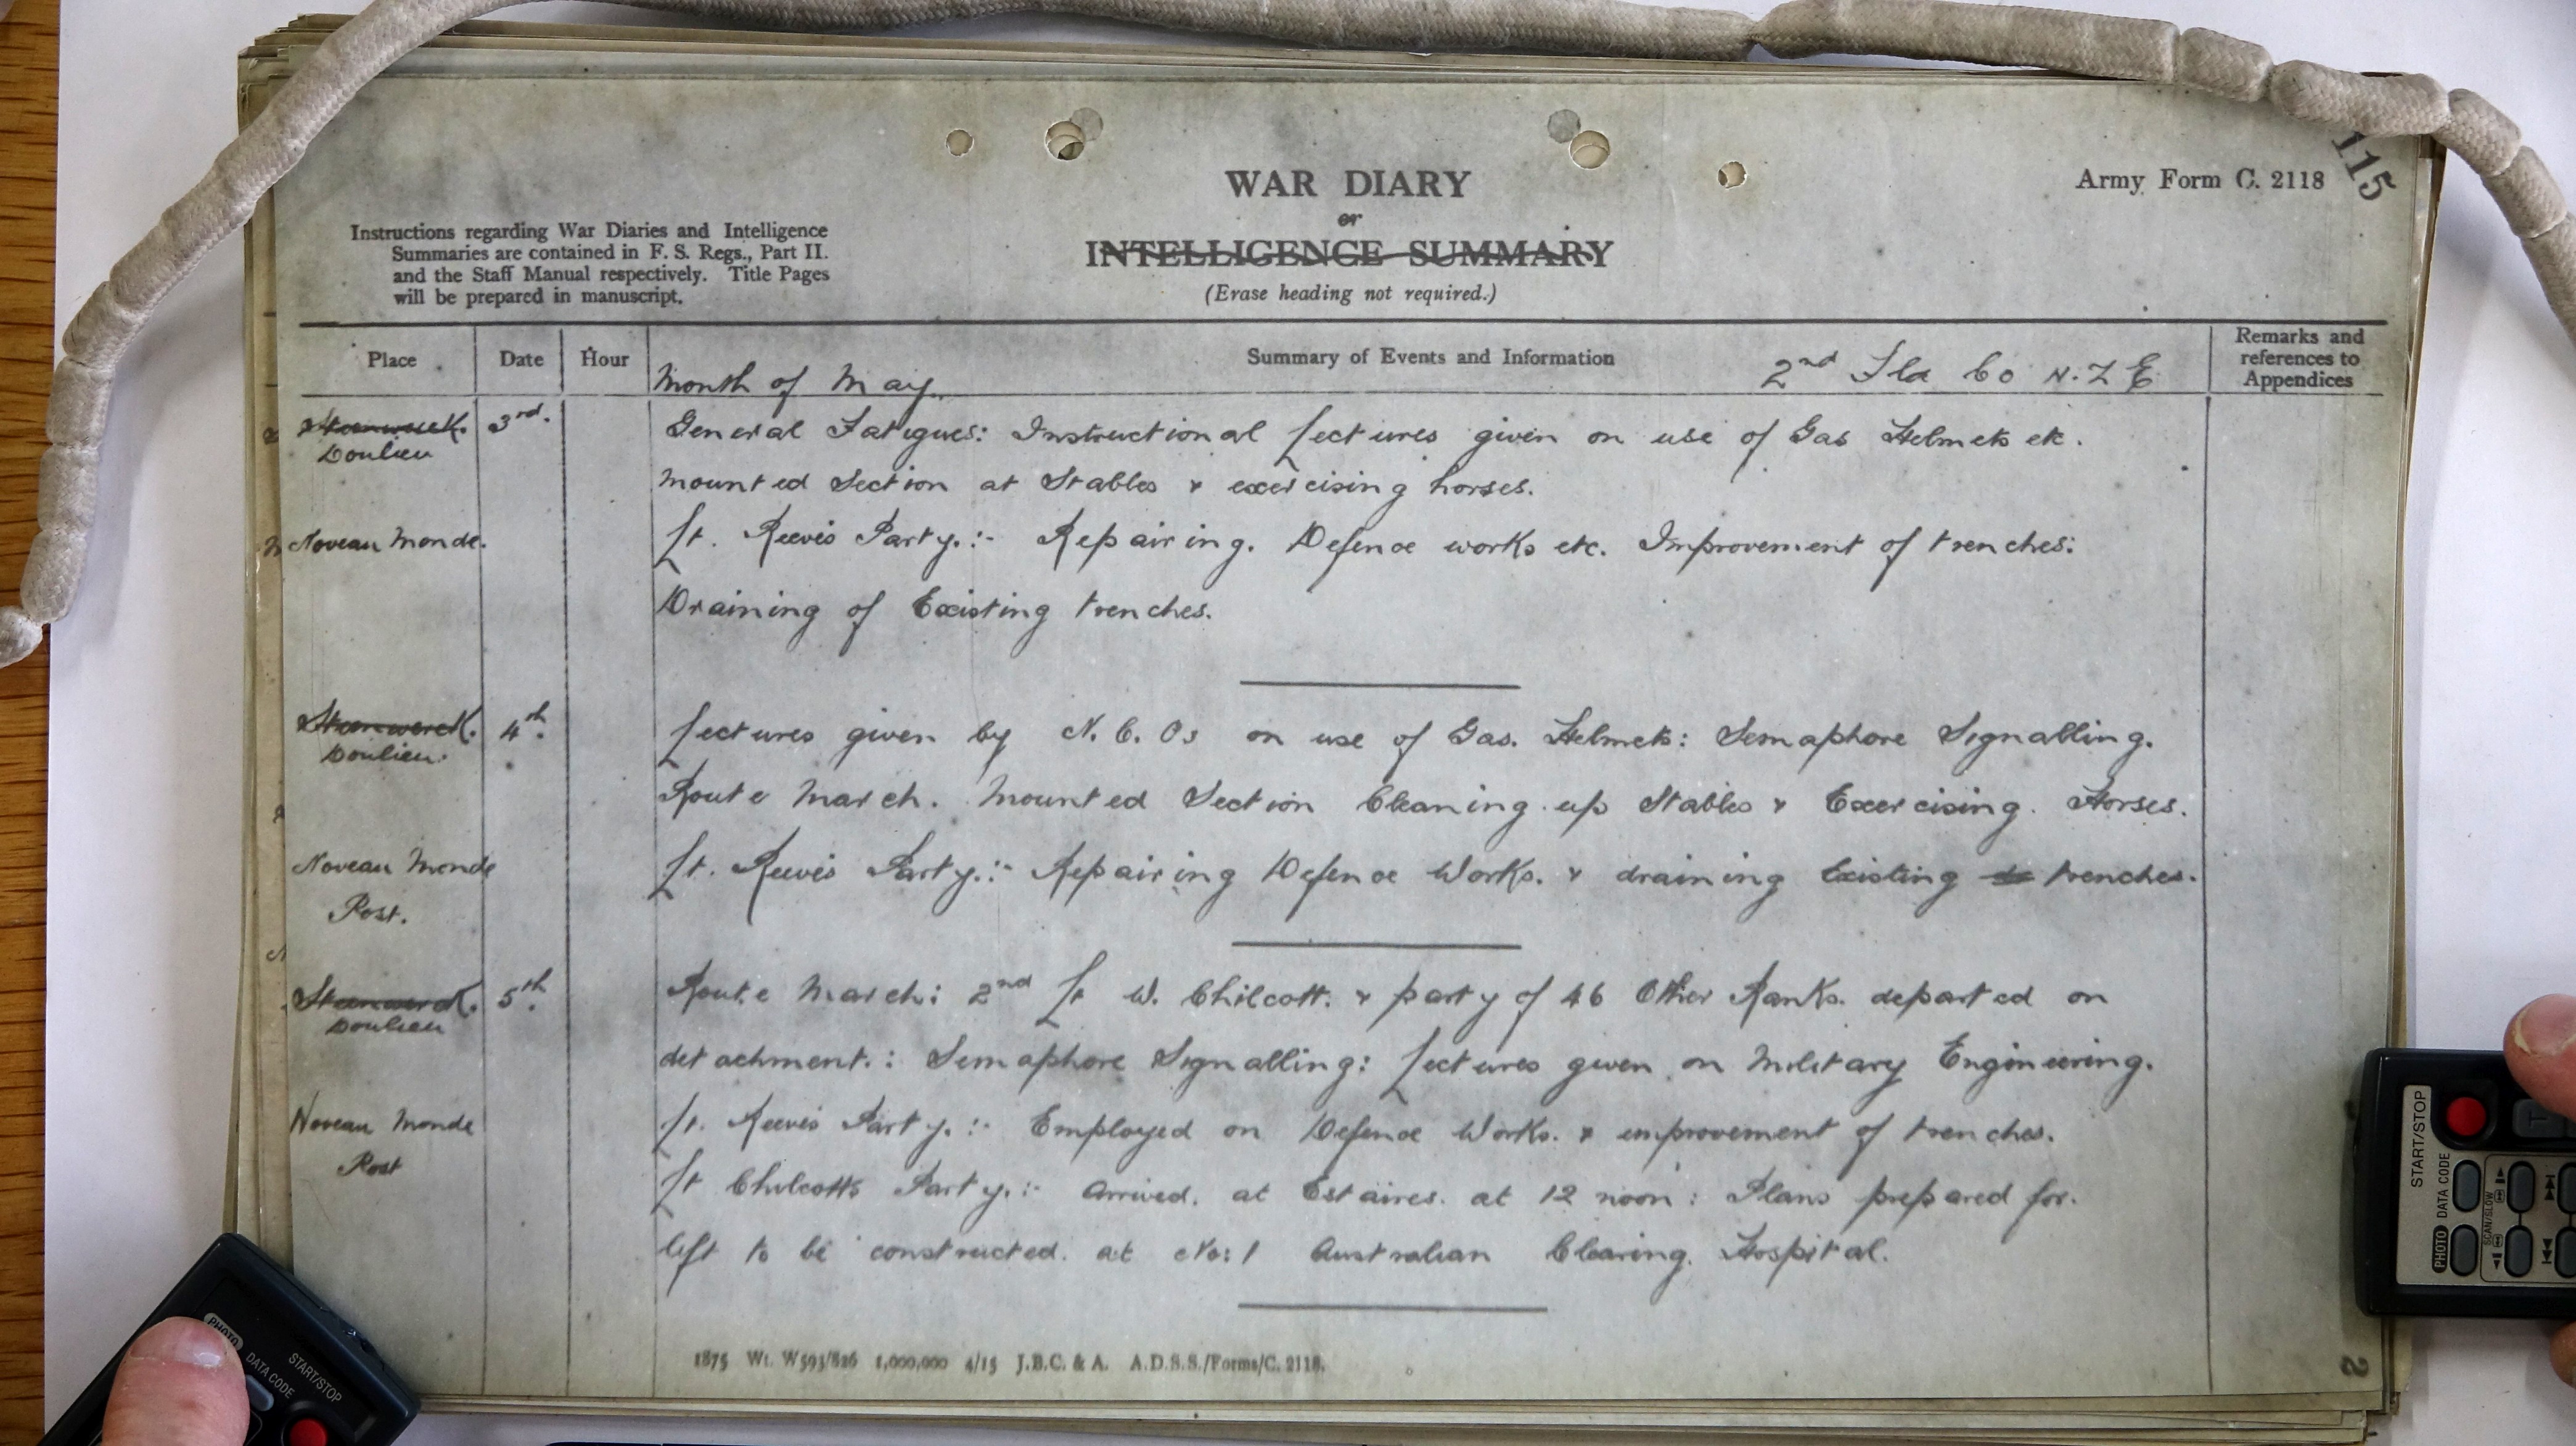 115
Army Form C. 2118
WAR DIARY
or
INTELLIGENCE SUMMARY
(Erase heading not required.)
Instructions regarding War Diaries and Intelligence
Summaries are contained in F. S. Regs., Part II.
and the Staff Manual respectively. Title Pages
will be prepared in manuscript.
Place Date Hour Summary of Events and Information Remarks and
references to
Appendices
Month of May. 2nd Fld Co N.Z.E
Steenwerck. 3rd. General Fatigues: Instructional Lectures given on use of Gas Helmets etc.
Doulieu
Mounted Section at Stables & exercising horses.
Noveau Monde. Lt. Reeves Party.:- Repairing. Defence works etc. Improvement of trenches:
Draining of Existing trenches.
Steenwerck. 4th. Lectures given by N.C.Os on use of Gas. Helmets: Semaphore Signalling.
Doulieu.
Route March. Mounted Section Cleaning up Stables & Exercising. Horses.
Noveau Monde Lt. Reeves Party.:- Repairing Defence Works. & draining Existing trenches.
Post.
Steenwerck. 5th. Route March: 2nd Lt W. Chilcott. & party of 46 Other Ranks. departed on
Doulieu
detachment.: Semaphore Signalling: Lectures given on Military Engineering.
Noveau Monde Lt. Reeves Party.:- Employed on Defence Works. & improvement of trenches.
Post
Lt Chilcotts Party.:- Arrived. at Estaires. at 12 noon: Plans prepared for.
lift to be constructed. at No: 1 Australian Clearing. Hospital.
1875 Wt. W593/826 1,000,000 4/15 J.B.C. & A. A.D.S.S./Forms/C. 2118.
2
PHOTO DATA CODE START/STOP
START/STOP
DATA CODE
PHOTO
SCAN/SLOW
T